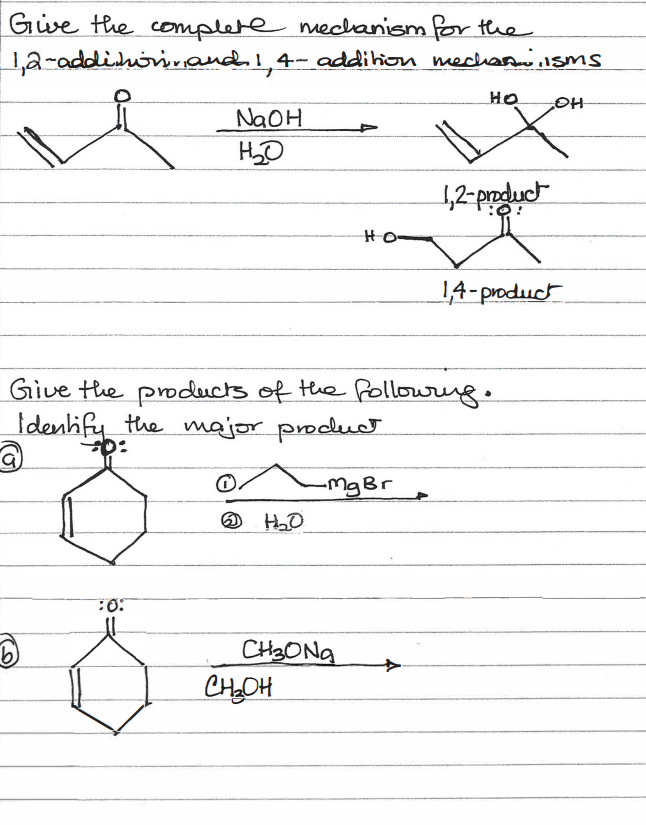 Give the complete mechanism for the
1,2-addition and 1,4-addition mechanisms
O
HO OH
NaOH
H₂O
1,2-product
:O:
HO
1,4-product
Give the products of the following.
Identify the major product
a :O:
① MgBr
② H₂O
:O:
b CH₃ONa
CH₃OH